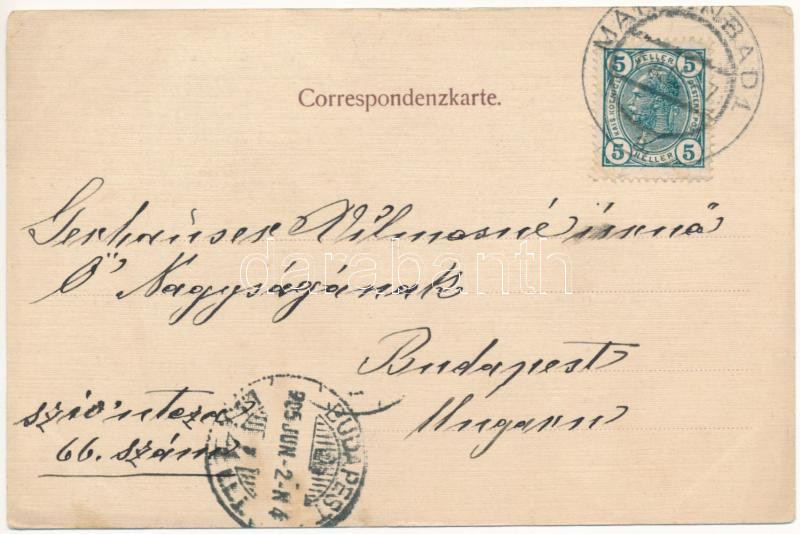 Correspondenzkarte.
MARIENBAD 1
5 HELLER 5
5 HELLER 5
Gerhauser Vilmosné úrnő
Ő Nagyságának
darabanth
Budapest
Ungarn
szív utcza
66. szám
BUDAPEST
905 JUN-2-N4